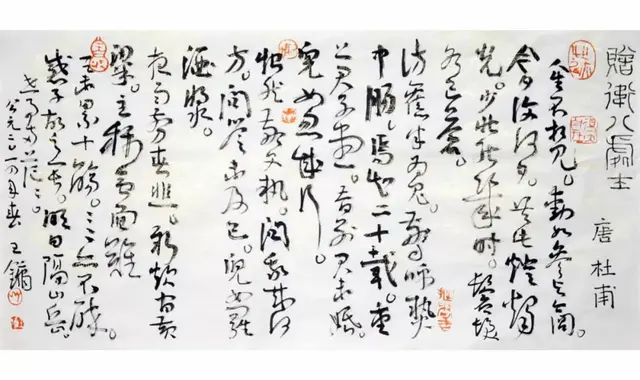 贈衛八處士
唐 杜甫
人生不相見。動如參與商。
今夕復何夕。共此燈燭
光。少壯能幾時。鬢髮
各已蒼。
訪舊半為鬼。驚呼熱
中腸。焉知二十載。重
上君子堂。昔別君未婚。
兒女忽成行。
怡然敬父執。問我來何
方。問答未及已。兒女羅
酒漿。
夜雨剪春韭。新炊間黃
粱。主稱會面難。
累十觴。〻〻亦不醉。
感子故意長。明日隔山岳。
世事兩茫〻。
公元二〇一四年春 王鏞